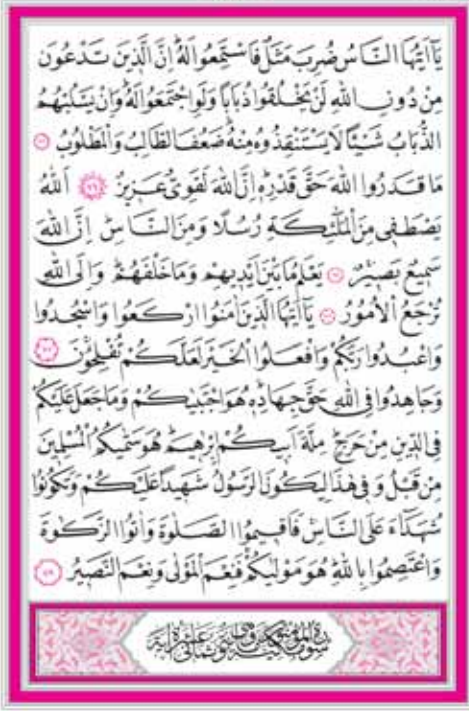 يَٓا اَيُّهَا النَّاسُ ضُرِبَ مَثَلٌ فَاسْتَمِعُوا لَهُۜ اِنَّ الَّذ۪ينَ تَدْعُونَ
مِنْ دُونِ اللّٰهِ لَنْ يَخْلُقُوا ذُبَابًا وَلَوِ اجْتَمَعُوا لَهُۜ وَاِنْ يَسْلُبْهُمُ
الذُّبَابُ شَيْـًٔا لَا يَسْتَنْقِذُوهُ مِنْهُۜ ضَعُفَ الطَّالِبُ وَالْمَطْلُوبُ ٧٣
مَا قَدَرُوا اللّٰهَ حَقَّ قَدْرِه۪ۜ اِنَّ اللّٰهَ لَقَوِيٌّ عَز۪يزٌ ٧٤ اَللّٰهُ
يَصْطَف۪ي مِنَ الْمَلٰٓئِكَةِ رُسُلًا وَمِنَ النَّاسِۜ اِنَّ اللّٰهَ
سَم۪يعٌ بَص۪يرٌۚ ٧٥ يَعْلَمُ مَا بَيْنَ اَيْد۪يهِمْ وَمَا خَلْفَهُمْۜ وَاِلَى اللّٰهِ
تُرْجَعُ الْاُمُورُ ٧٦ يَٓا اَيُّهَا الَّذ۪ينَ اٰمَنُوا ارْكَعُوا وَاسْجُدُوا
وَاعْبُدُوا رَبَّكُمْ وَافْعَلُوا الْخَيْرَ لَعَلَّكُمْ تُفْلِحُونَۚ ٧٧
وَجَاهِدُوا فِي اللّٰهِ حَقَّ جِهَادِه۪ۜ هُوَ اجْتَبٰيكُمْ وَمَا جَعَلَ عَلَيْكُمْ
فِي الدّ۪ينِ مِنْ حَرَجٍۜ مِلَّةَ اَب۪يكُمْ اِبْرٰه۪يمَۜ هُوَ سَمّٰيكُمُ الْمُسْلِم۪ينَ
مِنْ قَبْلُ وَف۪ي هٰذَا لِيَكُونَ الرَّسُولُ شَه۪يدًا عَلَيْكُمْ وَتَكُونُوا
شُهَدَٓاءَ عَلَى النَّاسِۚ فَاَق۪يمُوا الصَّلٰوةَ وَاٰتُوا الزَّكٰوةَ
وَاعْتَصِمُوا بِاللّٰهِۜ هُوَ مَوْلٰيكُمْۚ فَنِعْمَ الْمَوْلٰى وَنِعْمَ النَّص۪يرُ ٧٨
سُورَةُ الْمُؤْمِنُونَ مَكِّيَّةٌ وَهِيَ مِائَةٌ وَثَمَانِيَ عَشْرَةَ اٰيَةً